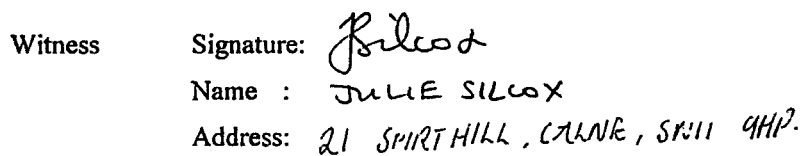 Witness Signature: JSilcox
Name : JULIE SILCOX
Address: 21 SPIRT HILL, CALNE, SN11 9HP.